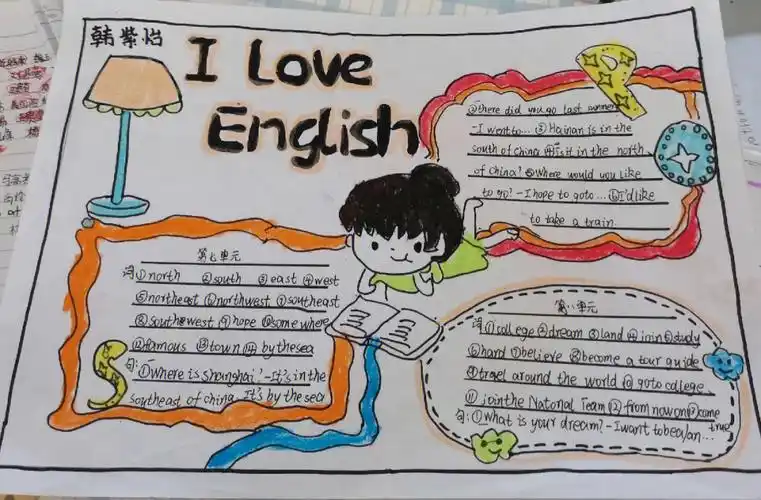 韩紫怡
I Love
English
P
②there did you go last summer
-I went to... ③Hainan is in the
south of China ④Is it in the north
of China? ⑤Where would you like
to go? -I hope to go to... ⑥I'd like
to take a train.
第七单元
词①north ②south ③east ④west
⑤northeast ⑥northwest ⑦southeast
⑧southwest ⑨hope ⑩somewhere
⑫famous ⑬town ⑭by the sea
句:①Where is Shanghai? -It's in the
southeast of china. It's by the sea
S
第八单元
词①college ②dream ③land ④join ⑤study
⑥hard ⑦believe ⑧become a tour guide
⑨travel around the world ⑩go to college
⑪join the National Team ⑫from now on ⑬come true
句:①what is your dream? -I want to be a/an...